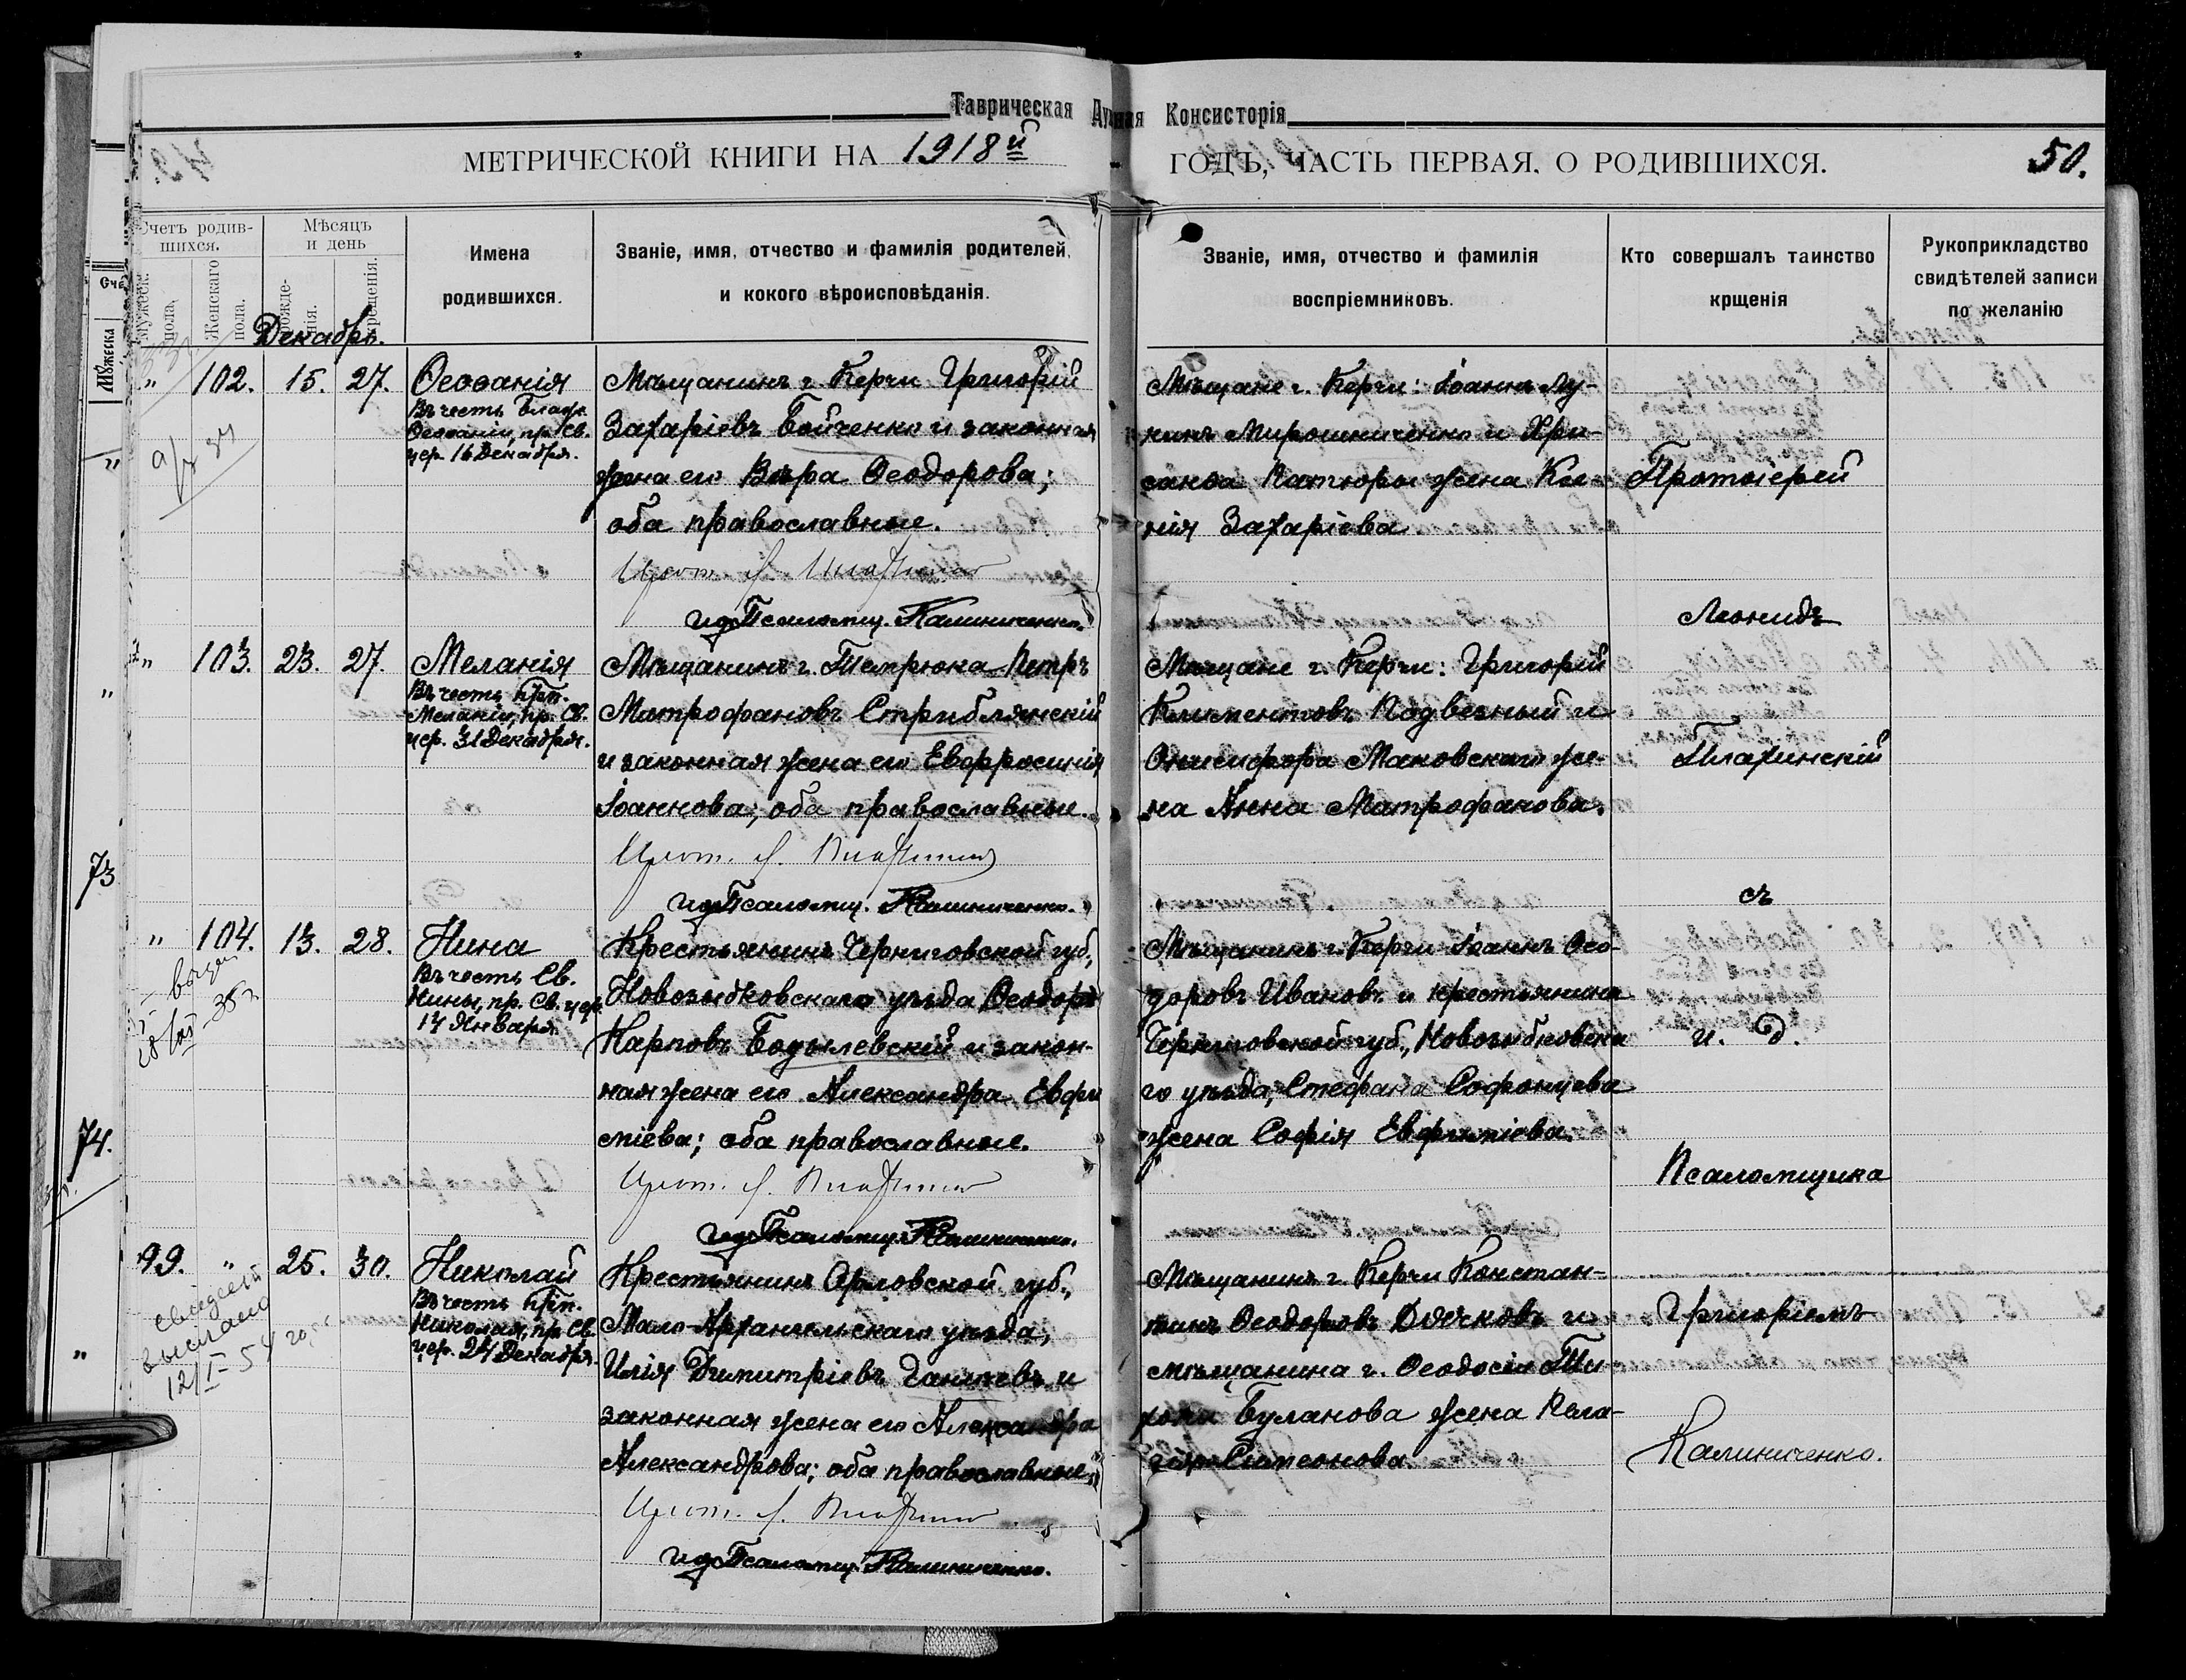 Таврическая Духовная Консисторія
МЕТРИЧЕСКОЙ КНИГИ НА 1918й ГОДЪ, ЧАСТЬ ПЕРВАЯ, О РОДИВШИХСЯ.
50.
Счетъ родив-
шихся.
Мужеск.
пола.
Женскаго
пола.
Мѣсяцъ
и день
рожде-
нія.
крещенія.
Имена
родившихся.
Званіе, имя, отчество и фамилія родителей,
и кокого вѣроисповѣданія.
Званіе, имя, отчество и фамилія
воспріемниковъ.
Кто совершалъ таинство
крщенія
Рукоприкладство
свидѣтелей записи
по желанію
Декабрь.
" 102. 15. 27.
Ѳеоѳанія
Въ честь Блаж.
Ѳеоѳаніи, пр. Св.
цер. 16 Декабря.
Мѣщанинъ г. Керчи Григорій
Захаріевъ Бойченко и законная
жена его Вѣра Ѳеодорова;
оба православные.
Прот.
и. д. Псаломщ. Калиниченко.
Мѣщане г. Керчи: Іоаннъ Лу-
кинъ Мирошниченко и Хри-
санѳа жена Ксе-
нія Захаріева
" 103. 23. 27.
Меланія
Въ честь прп.
Меланіи, пр. Св.
цер. 31 Декабря.
Мѣщанинъ г. Темрюка Петръ
Митрофановъ Стриблянскій
и законная жена его Евфросинія
Іоаннова; оба православные.
Прот.
и. д. Псаломщ. Калиниченко.
Мѣщане г. Керчи: Григорій
Климентовъ Подвезный и
Онисифора Маковскаго же-
на Анна Митрофанова.
73
" 104. 13. 28.
Нина
Въ честь Св.
Нины, пр. Св. цер.
14 Января.
Крестьянинъ Черниговской губ.,
Новозыбковскаго уѣзда Ѳеодоръ
Карповъ Бодылевскій и закон-
ная жена его Александра Евфи
міева; оба православные.
Прот.
и. д. Псаломщ. Калиниченко.
Мѣщанинъ г. Керчи Іоаннъ Ѳео-
доровъ Ивановъ и крестьянина
Черниговской губ., Новозыбковска
го уѣзда, Стефана Софонцева
жена Софія Евфиміева.
74.
99. " 25. 30.
Николай
Въ честь прп.
Николая, пр. Св.
цер. 24 Декабря.
выслано
12/I-54
Крестьянинъ Орловской губ.,
Мало-Архангельскаго уѣзда,
Илія Димитріевъ Ганичевъ и
законная жена его Александра
Александрова; оба православные.
Прот.
и. д. Псаломщ. Калиниченко.
Мѣщанинъ г. Керчи Констан-
тинъ Ѳеодоровъ Дьячковъ и
мѣщанина г. Ѳеодосіи Ти-
хона Буланова жена Пела-
гія Симеонова.
Протоіерей
Леонидъ
Плахинскій
съ
и. д.
Псаломщика
Григоріемъ
Калиниченко.